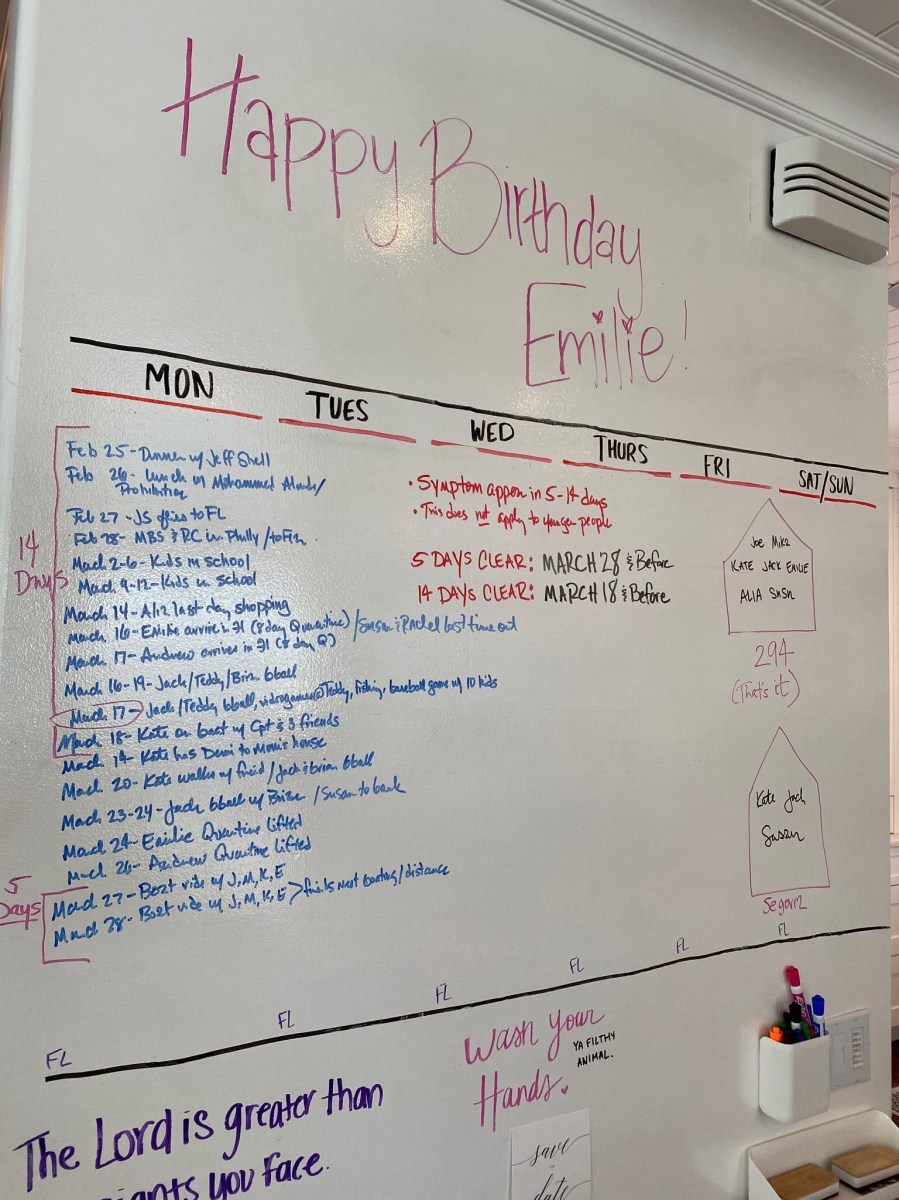 Happy Birthday
Emilie!
MON TUES WED THURS FRI SAT/SUN
14
Days
Feb 25 - Dinner w/ Jeff Shell
Feb 26 - Lunch w/ Mohammed /
Prohibition
Feb 27 - JS flies to FL
Feb 28 - MBS & RC in Philly /
March 2-6 - Kids in school
March 9-12 - Kids in school
March 14 - Alia last day shopping
March 16 - Emilie arrive in (8 day Quarantine) / Susan & Rachel last time out
March 17 - Andrew arrives in (8 day Q)
March 16-19 - Jack/Teddy/Brian bball
March 17 - Jack/Teddy bball, videogames @ Teddy, fishing, baseball game w/ 10 kids
March 18 - Kate on boat w/ Cpt & 3 friends
March 19 - Kate has to house
March 20 - Kate walks w/ friend / Jack & brian bball
March 23-24 - Jack bball w/ Brian / Susan to bank
March 24 - Emilie Quarntine lifted
March 26 - Andrew Quarntine lifted
5
Days
March 27 - Boat ride w/ J, M, K, E
March 28 - Boat ride w/ J, M, K, E > boating/distance
• Symptom appear in 5-14 days
• This does not apply to younger people
5 DAYS CLEAR: MARCH 28 & Before
14 DAYS CLEAR: MARCH 18 & Before
Joe Mika
KATE JACK EMILIE
ALIA SUSAN
294
(That's it)
Kate Jack
Susan
Segovia
FL FL FL FL FL FL
Wash Your
Hands.
YA FILTHY
ANIMAL.
The Lord is greater than
you face.
save
date